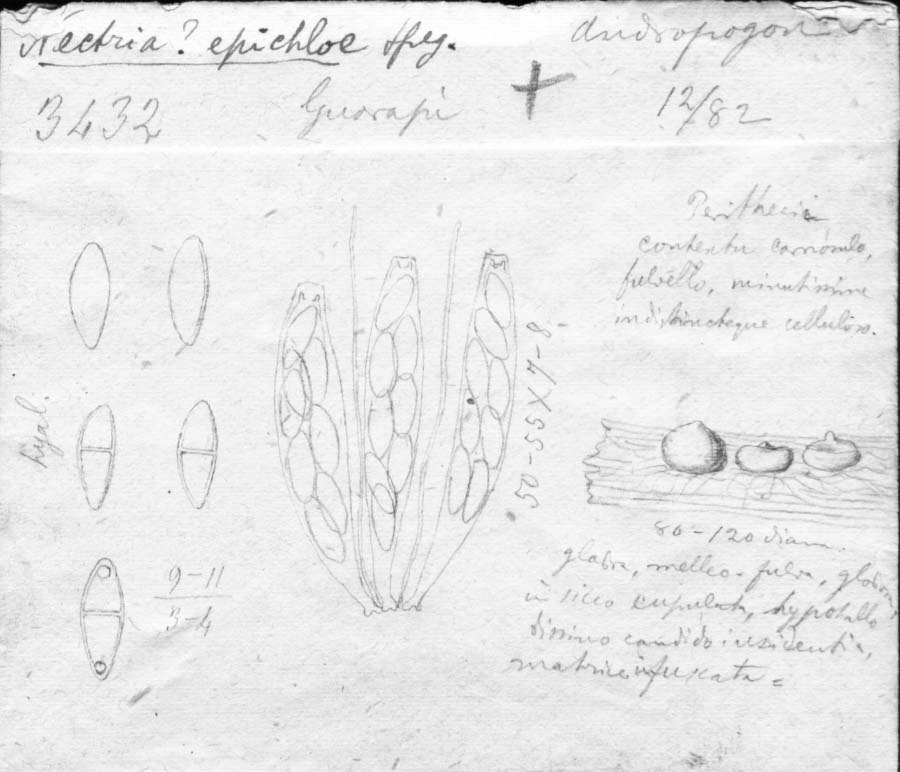 Nectria? epichloe Speg.
Andropogon
3432 Guarapi + 12/82
Perithecii
contextu carnosulo,
fulvello, minutissime
indistincteque celluloso.
hyal.
50-55 X 7-8
9-11
3-4
80-120 diam.
glabra, melleo-fulva, globosa,
in sicco cupulata, hypothallo
candido insidentia,
matrice infuscata =